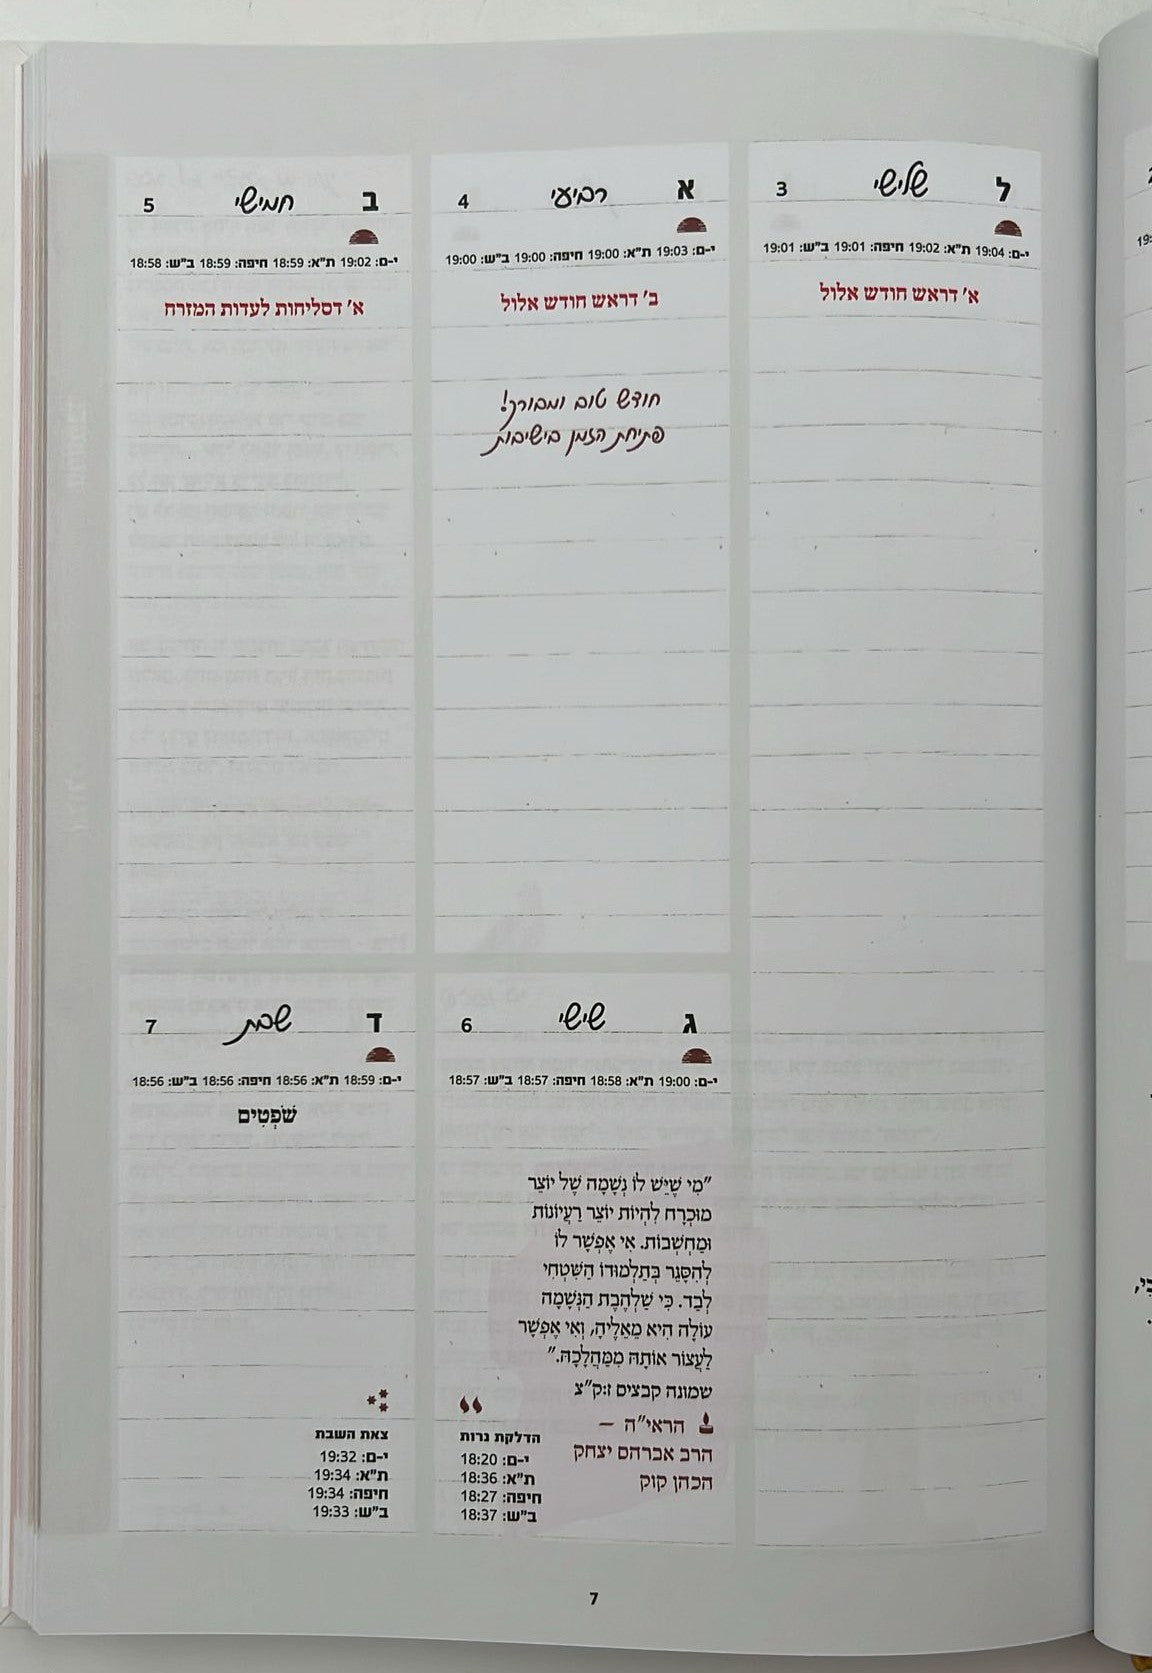 ל שלישי 3
י-ם: 19:04 ת"א: 19:02 חיפה: 19:01 ב"ש: 19:01
א' דראש חודש אלול
א רביעי 4
י-ם: 19:03 ת"א: 19:00 חיפה: 19:00 ב"ש: 19:00
ב' דראש חודש אלול
חודש טוב ומבורך!
פתיחת הזמן בישיבות
ב חמישי 5
י-ם: 19:02 ת"א: 18:59 חיפה: 18:59 ב"ש: 18:58
א' דסליחות לעדות המזרח
ג שישי 6
י-ם: 19:00 ת"א: 18:58 חיפה: 18:57 ב"ש: 18:57
"מִי שֶׁיֵּשׁ לוֹ נְשָׁמָה שֶׁל יוֹצֵר
מוּכְרָח לִהְיוֹת יוֹצֵר רַעְיוֹנוֹת
וּמַחְשָׁבוֹת. אִי אֶפְשָׁר לוֹ
לְהִסָּגֵר בְּתַלְמוּדוֹ הַשִּׁטְחִי
לְבַד. כִּי שַׁלְהֶבֶת הַנְּשָׁמָה
עוֹלָה הִיא מֵאֵלֶיהָ, וְאִי אֶפְשָׁר
לַעֲצוֹר אוֹתָהּ מִמַּהֲלָכָהּ."
שמונה קבצים ז:ק"צ
הראי"ה –
הרב אברהם יצחק
הכהן קוק
הדלקת נרות
י-ם: 18:20
ת"א: 18:36
חיפה: 18:27
ב"ש: 18:37
ד שבת 7
י-ם: 18:59 ת"א: 18:56 חיפה: 18:56 ב"ש: 18:56
שֹׁפְטִים
צאת השבת
י-ם: 19:32
ת"א: 19:34
חיפה: 19:34
ב"ש: 19:33
7